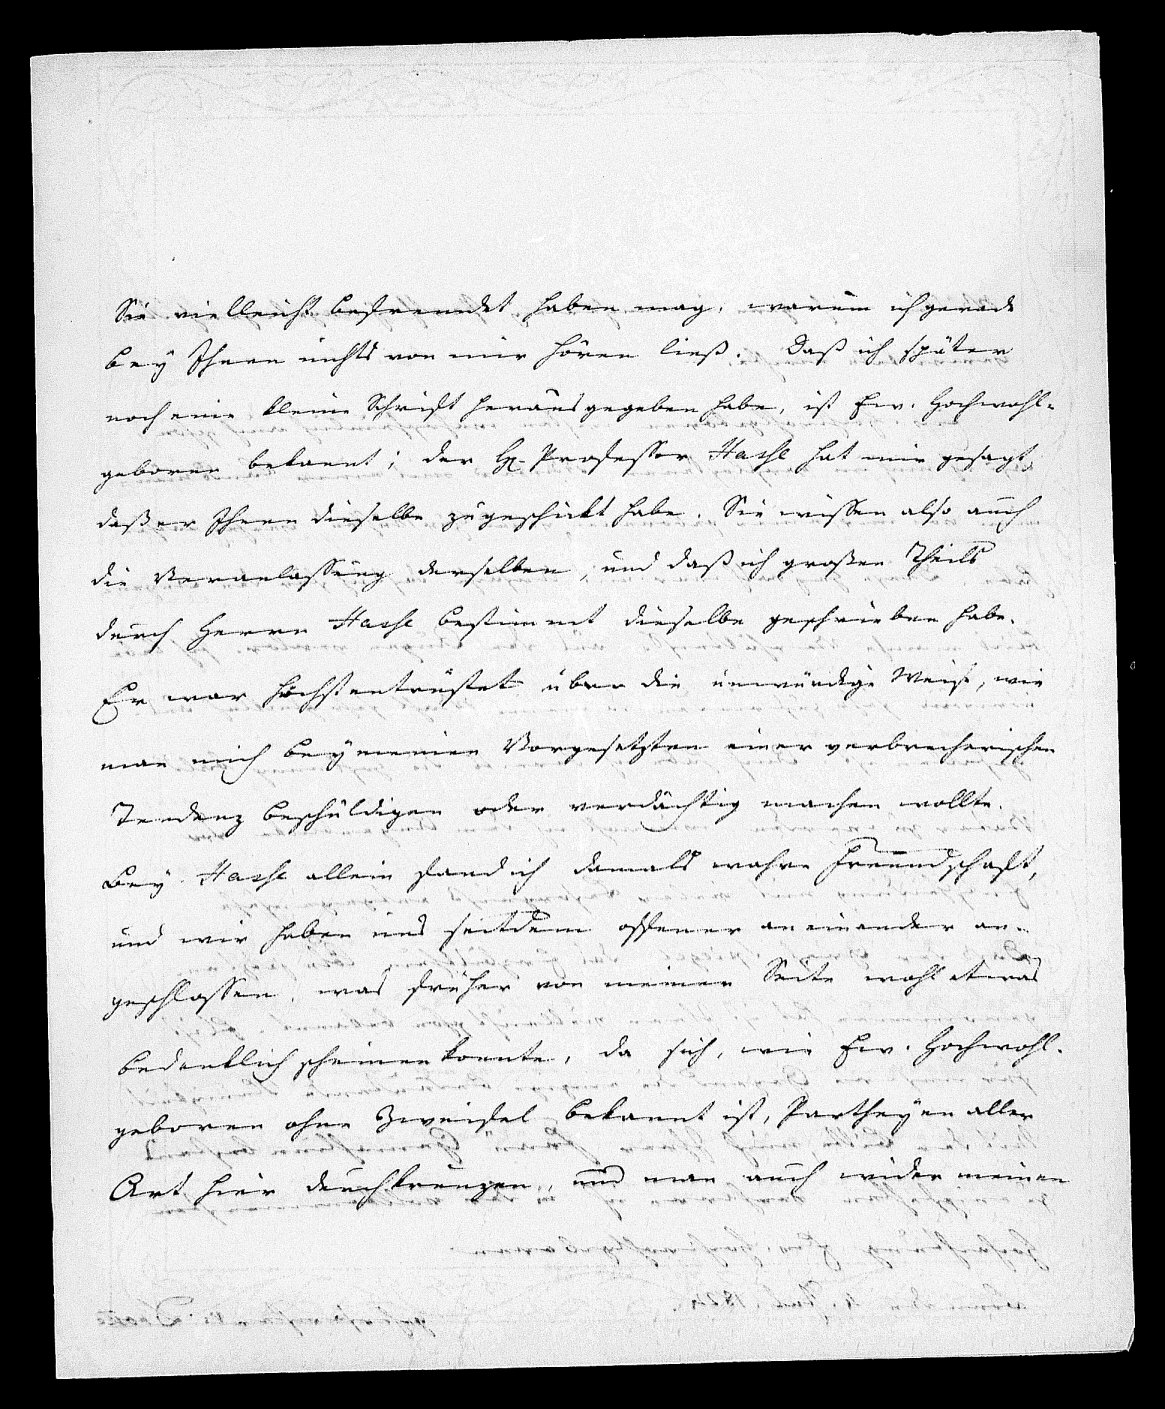 Sie vielleicht befremdet haben mag, warum ich gerade
bey Ihnen nichts von mir hören ließ. Daß ich später
noch eine kleine Schrift herausgegeben habe, ist Ew. Hochwohl-
geboren bekannt; der H. Professor Hasse hat mir gesagt,
daß er Ihnen dieselbe zugeschickt habe. Sie wissen also auch
die Veranlassung derselben, und daß ich großen Theils
durch Herrn Hasse bestimmt dieselbe geschrieben habe.
Er war höchst entrüstet über die unwürdige Weise, wie
man mich bey meinen Vorgesetzten einer verbrecherischen
Tendenz beschuldigen oder verdächtig machen wollte.
Bey Hasse allein fand ich damals wahre Freundschaft,
und wir haben uns seitdem offener an einander an-
geschlossen, was früher von meiner Seite wohl etwas
bedenklich scheinen konnte, da sich, wie Ew. Hochwohl-
geboren ohne Zweifel bekannt ist, Partheyen aller
Art hier durchkreuzen, und man auch wider meinen